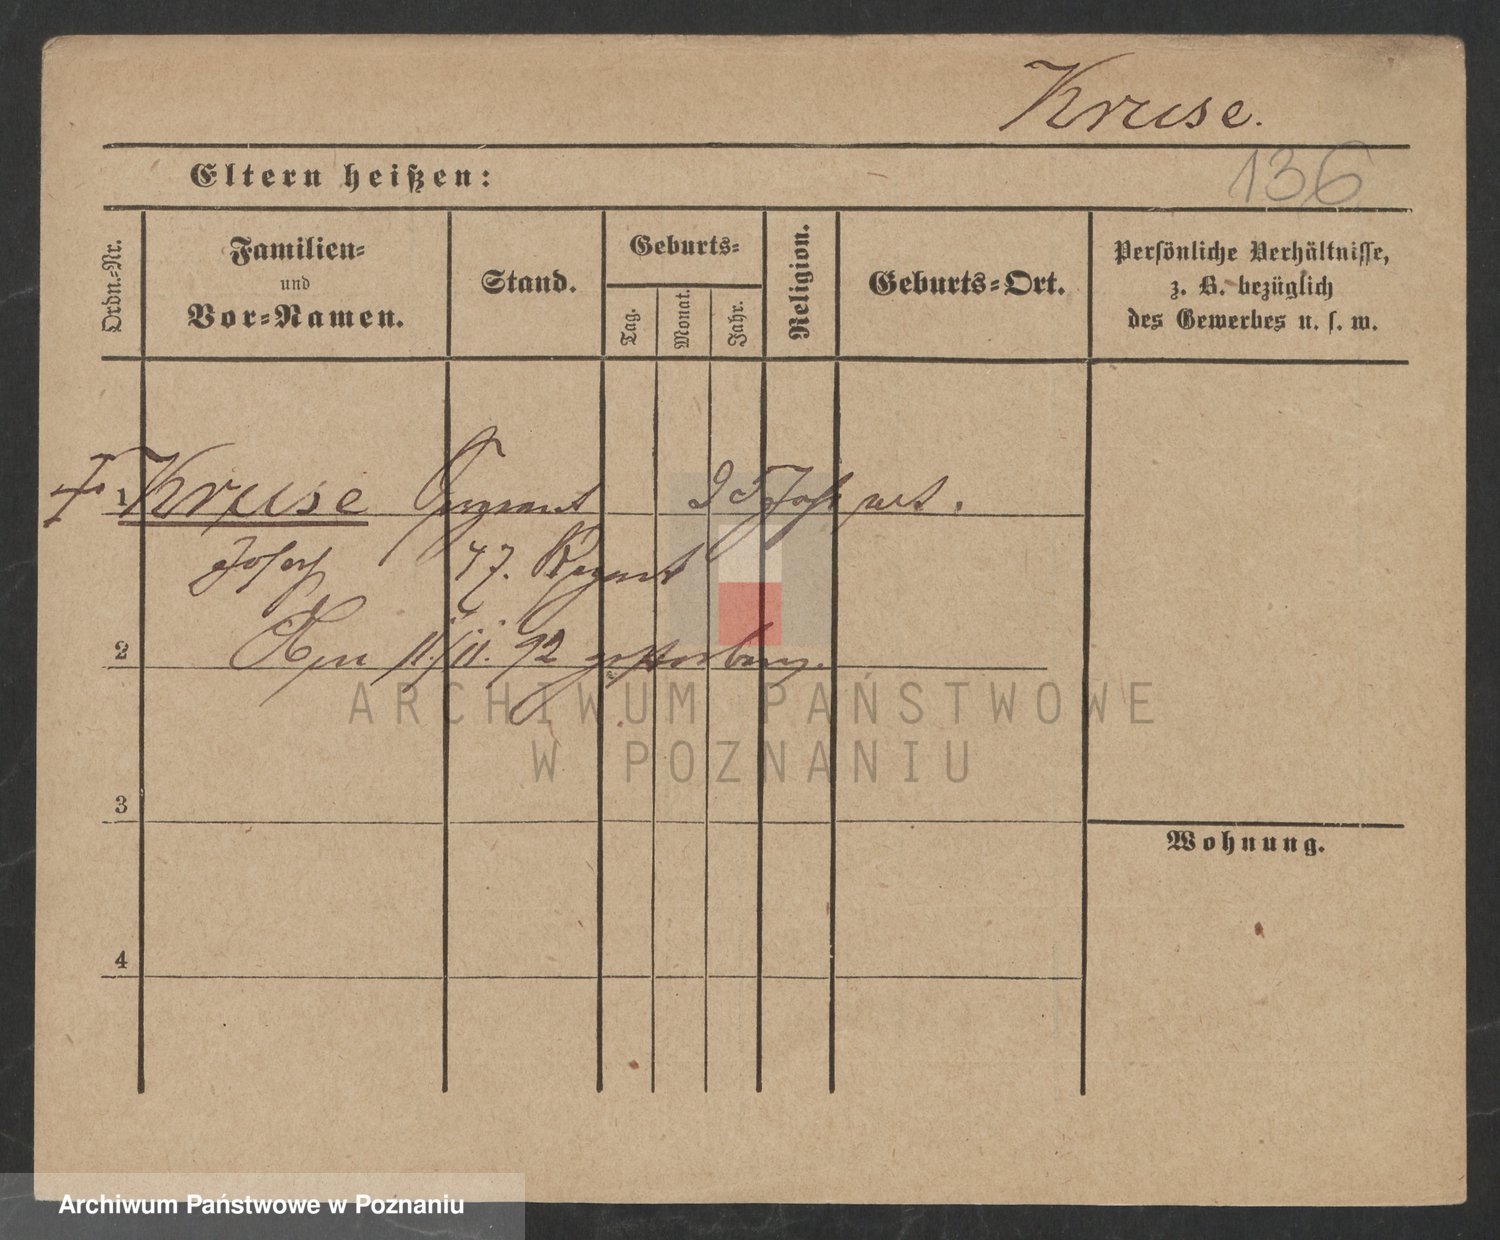 Kruse.
136
Eltern heißen:
Ordn.-Nr.
Familien-
und
Vor-Namen.
Stand.
Geburts-
Tag.
Monat.
Jahr.
Religion.
Geburts-Ort.
Persönliche Verhältnisse,
z. B. bezüglich
des Gewerbes u. s. w.
1 Kruse Sergeant 25 Jahr alt.
Josef 47. Regmt
2
Am 11./11. 92 gestorben.
3
4
Wohnung.
ARCHIWUM PAŃSTWOWE
W POZNANIU
Archiwum Państwowe w Poznaniu